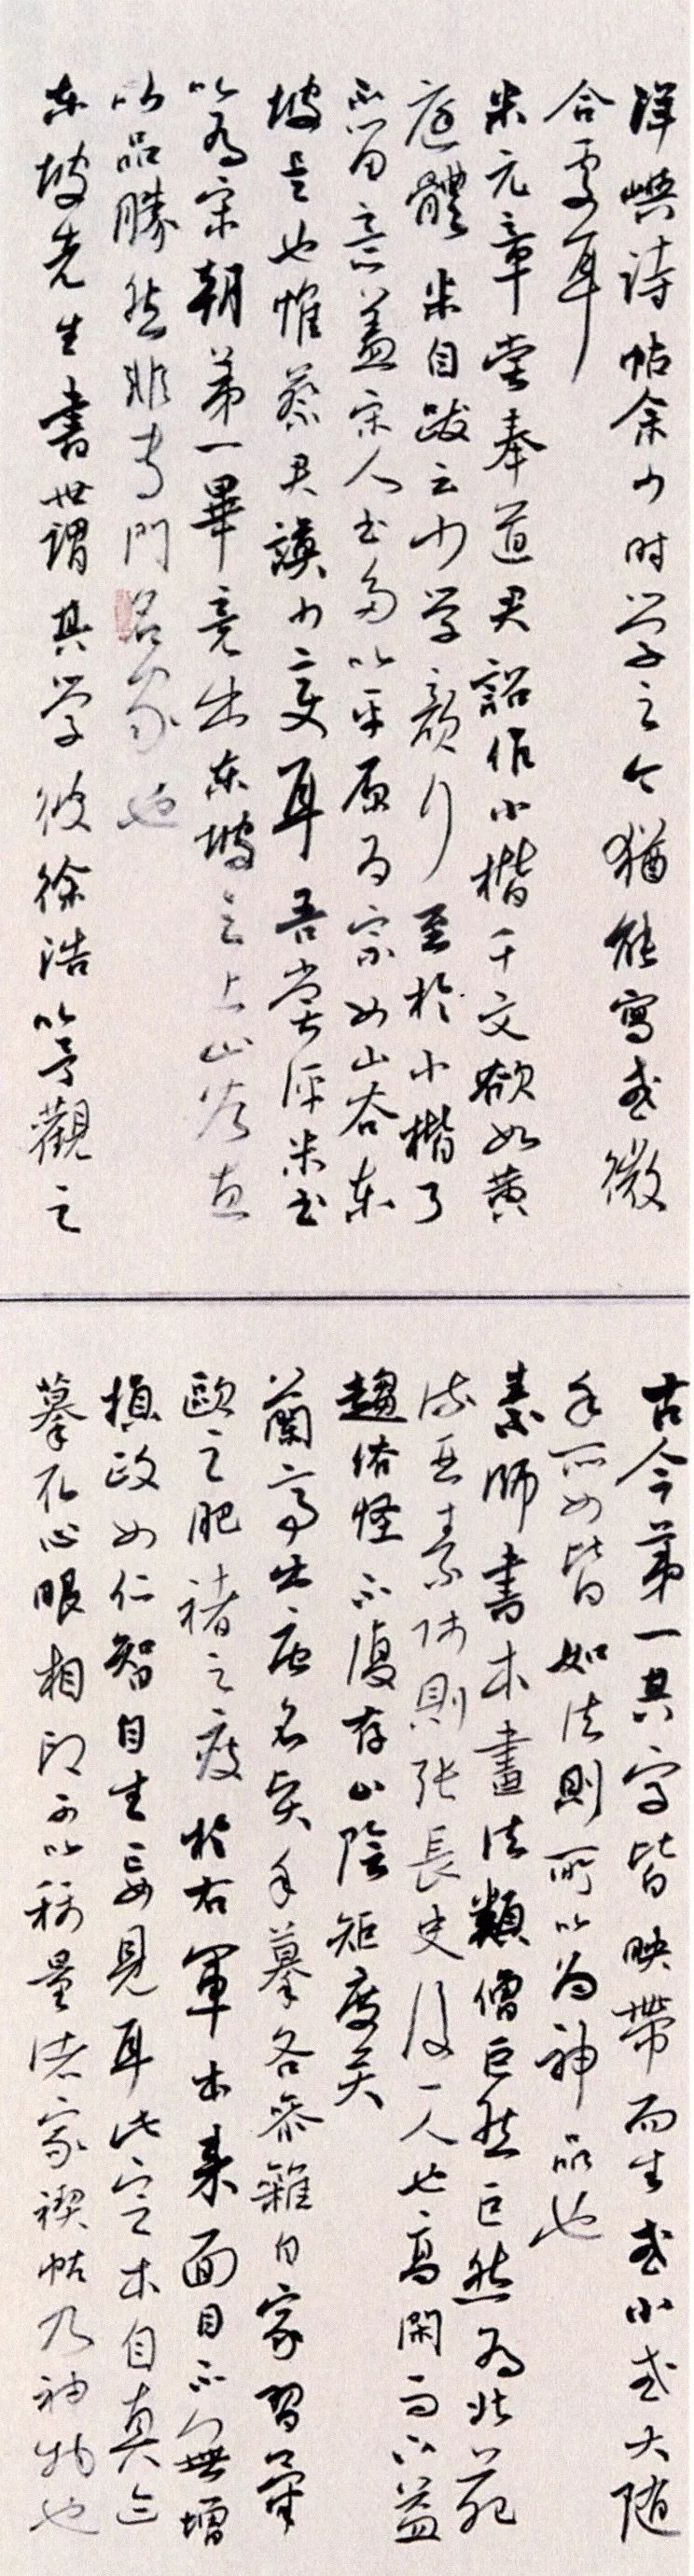 洋嶼诗帖余少时学之今猶能寫或微
合處耳
米元章尝奉道君詔作小楷千文欲如黄
庭體米自跋云少学颜行至於小楷了
不留意蓋宋人书多以平原为宗如山谷东
坡是也惟蔡君謨少變耳吾嘗评米书
以為宋朝第一畢竟出东坡之上山谷直
以品勝然非专門名家也
东坡先生書世謂其学徐浩以予觀之
古今第一其字皆映帶而生或小或大随
手所如皆如法則所以为神品也
素師書本畫法類僧巨然巨然為北苑
流亞素师則张長史後一人也高閑而下益
趨俗怪不復存山陰矩度矣
蘭亭出唐名賢手摹各参雜自家習氣
歐之肥褚之瘦於右軍本来面目不無增
損政如仁智自生妄見耳此定本自真迹
摹石心眼相印可以稱量諸家禊帖乃神物也